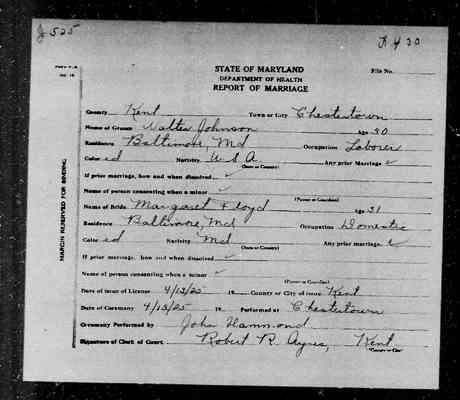 J 525
STATE OF MARYLAND
DEPARTMENT OF HEALTH
REPORT OF MARRIAGE
File No.
MARGIN RESERVED FOR BINDING
County Kent Town or City Chestertown
Name of Groom Walter Johnson Age 30
Residence Baltimore, Md Occupation Laborer
Color cd Nativity U S A Any prior Marriage ✓
(State or Country)
If prior marriage, how and when dissolved ✓
Name of person consenting when a minor ✓
(Parent or Guardian)
Name of Bride Margaret Floyd age 31
Residence Baltimore, Md Occupation Domestic
Color cd Nativity Md Any prior marriage. ✓
(State or Country)
If prior marriage, how and when dissolved ✓
Name of person consenting when a minor ✓
(Parent or Guardian)
Date of Issue of License 4/13/25 19 County or City of issue Kent
Date of Ceremony 4/13/25 19 Performed at Chestertown
Ceremony Performed by John Hammond
Signature of Clerk of Court Robert R. Ayres, Kent
(County or City)